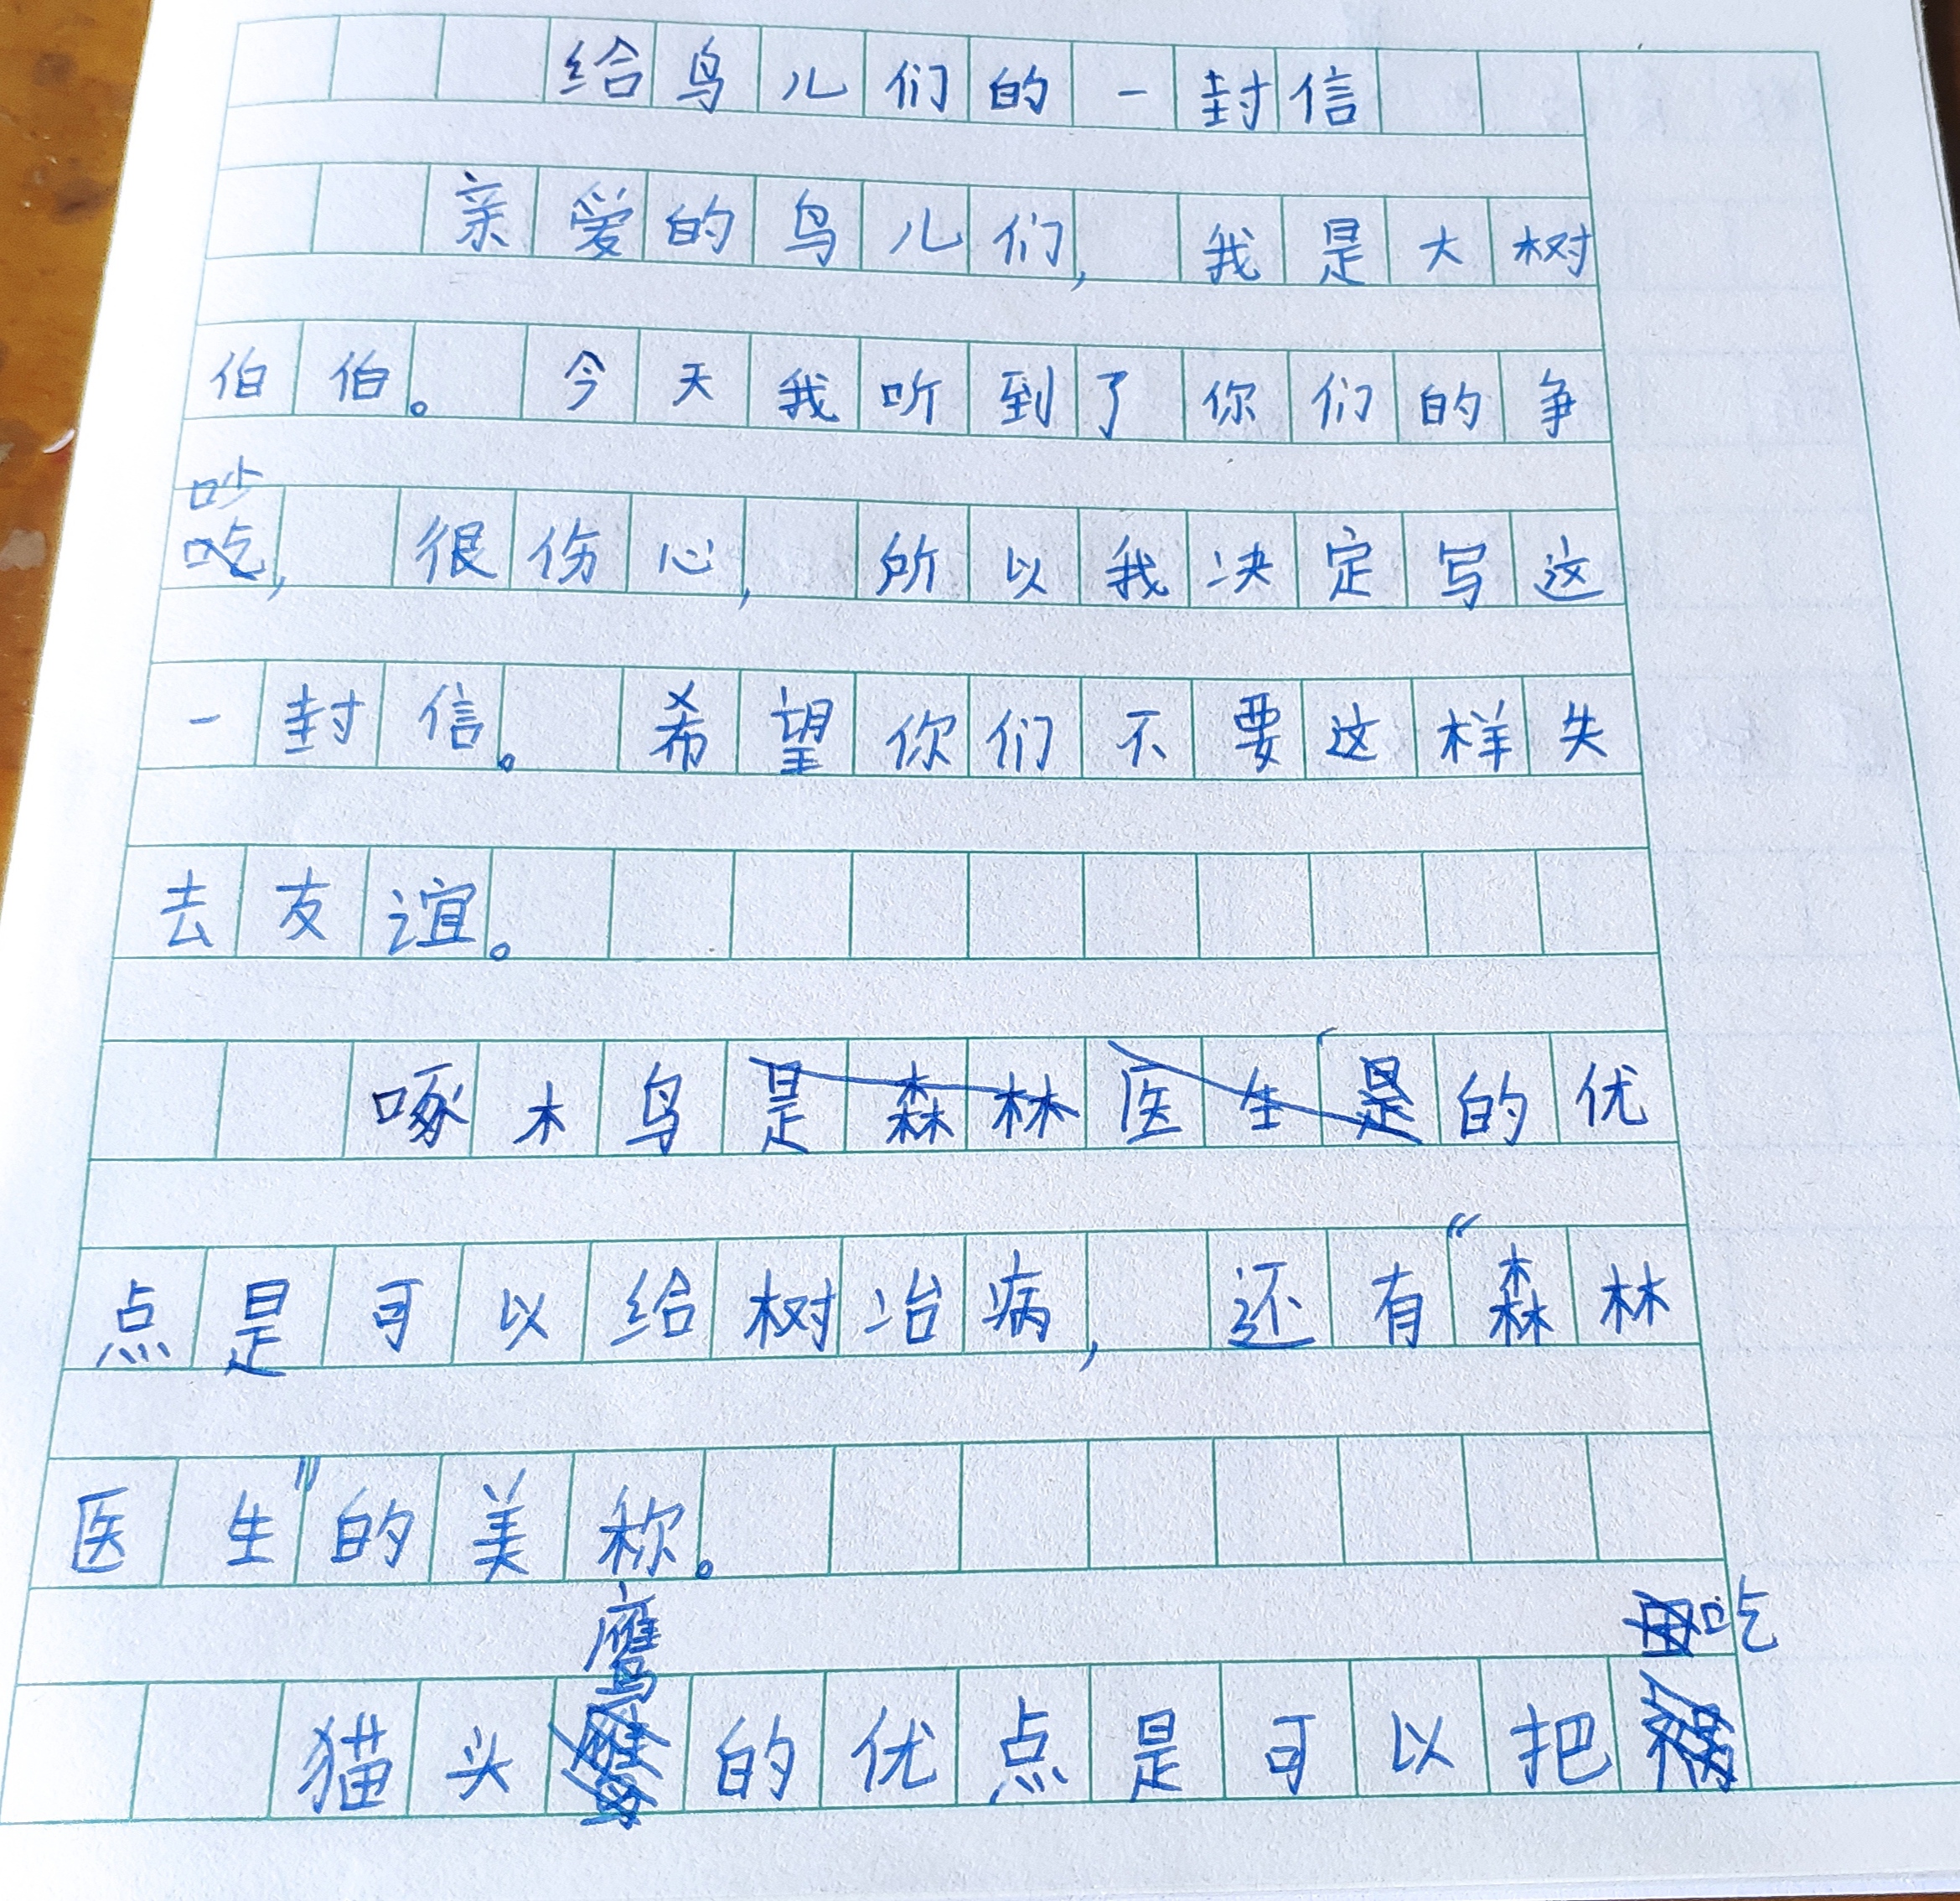 给鸟儿们的一封信
亲爱的鸟儿们，我是大树
伯伯。今天我听到了你们的争
吵，很伤心，所以我决定写这
一封信。希望你们不要这样失
去友谊。
啄木鸟的优
点是可以给树治病，还有“森林
医生”的美称。
猫头鹰的优点是可以把吃